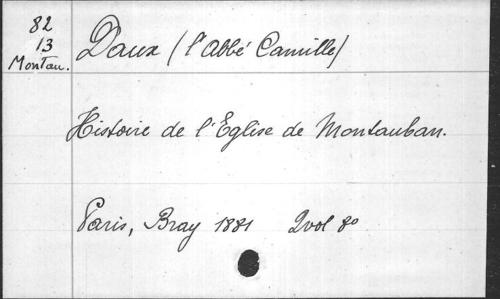 82
13
Montau.
Daux (l'Abbé Camille)
Histoire de l'Eglise de Montauban.
Paris, Bray 1881 2 vol 8°